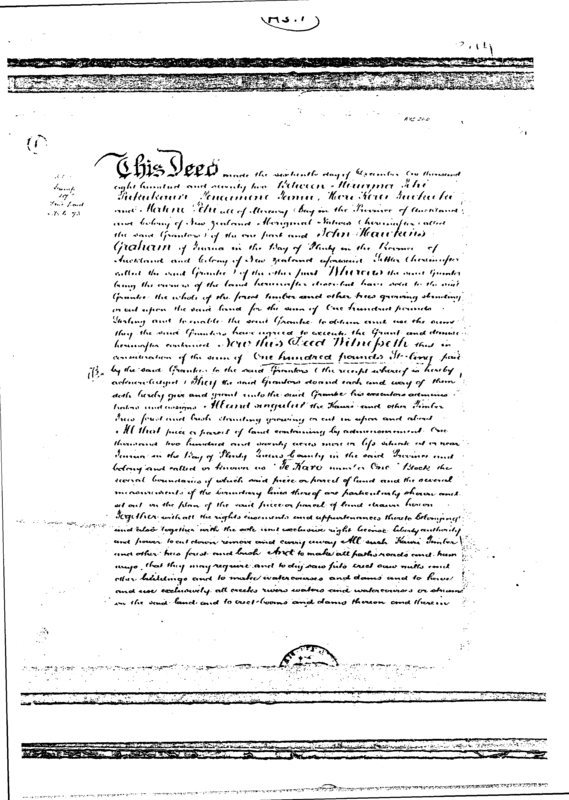 MS. 1
(1)
This Deed made the sixteenth day of December One thousand
eight hundred and seventy two Between
all of Mercury Bay in the Province of Auckland
and Colony of New Zealand Aboriginal Natives (hereinafter called
the said Grantors) of the one part and John Hawkins
Graham of Tairua in the Bay of Plenty in the Province of
Auckland and Colony of New Zealand aforesaid Settler (hereinafter
called the said Grantee) of the other part Whereas the said Grantors
being the owners of the land hereinafter described have sold to the said
Grantee the whole of the forest timber and other trees growing standing
or cut upon the said land for the sum of One hundred pounds
Sterling and to enable the said Grantee to obtain and use the same
they the said Grantors have agreed to execute the Grant and demise
hereinafter contained Now this Deed Witnesseth that in
consideration of the sum of One hundred pounds Sterling paid
by the said Grantee to the said Grantors (the receipt whereof is hereby
acknowledged) They the said Grantors do and each and every of them
doth hereby give and grant unto the said Grantee his executors adminis-
trators and assigns All and singular the Kauri and other Timber
Trees forest and bush standing growing or cut in upon and about
All that piece or parcel of land containing by admeasurement One
thousand two hundred and seventy acres more or less situate at or near
Tairua in the Bay of Plenty County in the said Province and
Colony and called or known as "Te Karo number One" Block the
several boundaries of which said piece or parcel of land and the several
measurements of the boundary lines thereof are particularly shewn and
set out in the plan of the said piece or parcel of land drawn hereon
Together with all the rights easements and appurtenances thereto belonging
and also together with the sole and exclusive right license liberty authority
and power to cut down remove and carry away All such Kauri Timber
and other trees forest and bush And to make all paths roads and tram
ways that they may require and to dig saw pits erect saw mills and
other buildings and to make watercourses and dams and to have
and use exclusively all creeks rivers waters and watercourses or streams
on the said land and to erect booms and dams thereon and therein